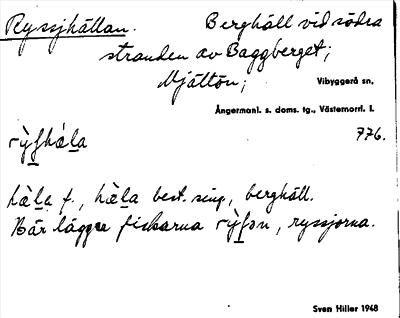 Ryssjhällan. Berghäll vid södra
stranden av Baggberget;
Mjältön; Vibyggerå sn,
Ångermanl. s. doms. tg., Västernorrl. l.
776.
hä̀la f., hä̀la best. sing., berghäll.
Här lägger fiskarna rỳʃən, ryssjorna.
Sven Hiller 1948